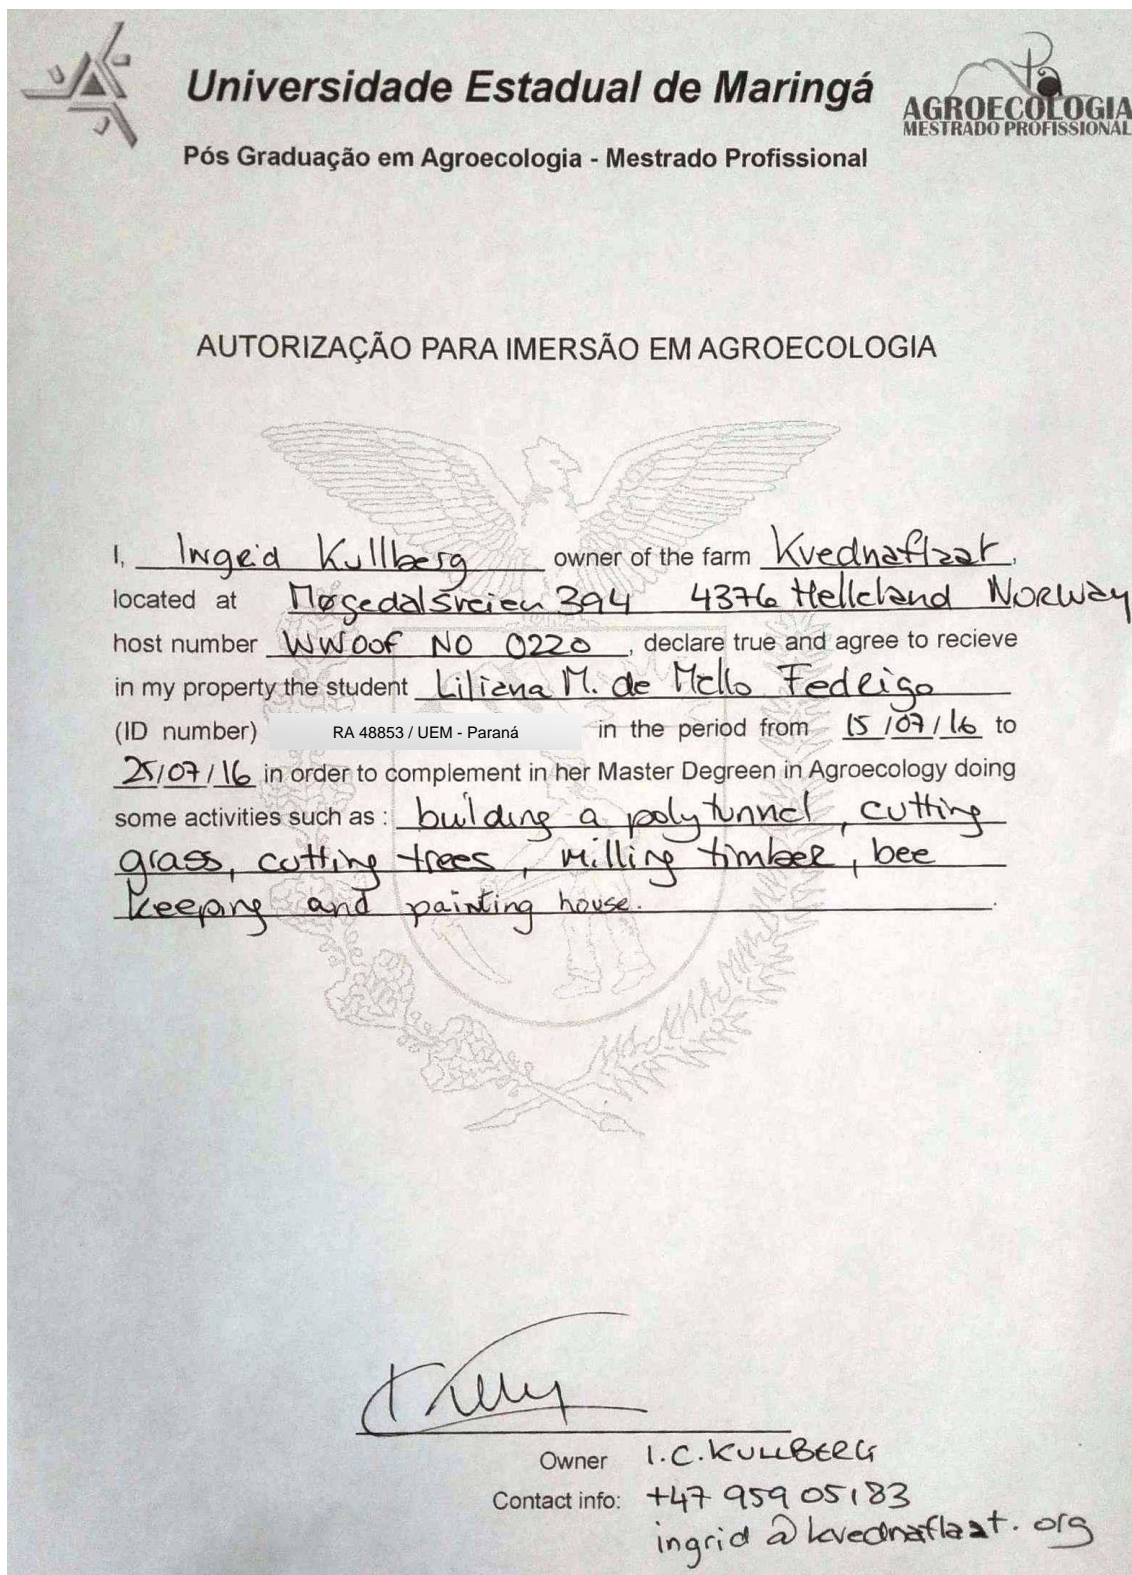 Universidade Estadual de Maringá
AGROECOLOGIA
MESTRADO PROFISSIONAL
Pós Graduação em Agroecologia - Mestrado Profissional
AUTORIZAÇÃO PARA IMERSÃO EM AGROECOLOGIA
I, Ingrid Kullberg owner of the farm Kvednaflaat,
located at Møgedalsveien 394 4376 Helleland NORWAY
host number WWOOF NO 0220, declare true and agree to recieve
in my property the student Liliana M. de Mello Fedrigo
(ID number) RA 48853 / UEM - Paraná in the period from 15/07/16 to
25/07/16 in order to complement in her Master Degreen in Agroecology doing
some activities such as : building a polytunnel, cutting
grass, cutting trees, milling timber, bee
keeping and painting house.
Owner I.C. KULLBERG
Contact info: +47 959 05183
ingrid@kvednaflaat.org